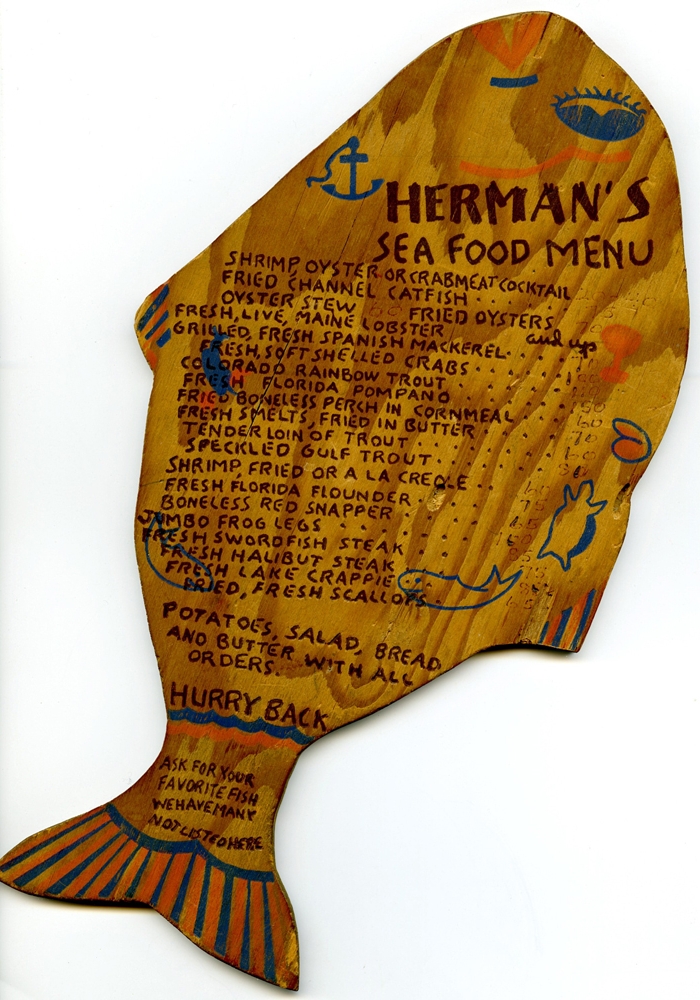 HERMAN'S
SEA FOOD MENU
SHRIMP, OYSTER OR CRABMEAT COCKTAIL
FRIED CHANNEL CATFISH
OYSTER STEW FRIED OYSTERS
FRESH, LIVE, MAINE LOBSTER and up
GRILLED, FRESH SPANISH MACKEREL
FRESH, SOFT SHELLED CRABS
COLORADO RAINBOW TROUT
FRESH FLORIDA POMPANO
FRIED BONELESS PERCH IN CORNMEAL
FRESH SMELTS, FRIED IN BUTTER
TENDERLOIN OF TROUT
SPECKLED GULF TROUT
SHRIMP, FRIED OR A LA CREOLE
FRESH FLORIDA FLOUNDER
BONELESS RED SNAPPER
JUMBO FROG LEGS
FRESH SWORDFISH STEAK
FRESH HALIBUT STEAK
FRESH LAKE CRAPPIE
FRIED, FRESH SCALLOPS
POTATOES, SALAD, BREAD
AND BUTTER WITH ALL
ORDERS.
HURRY BACK
ASK FOR YOUR
FAVORITE FISH
WE HAVE MANY
NOT LISTED HERE